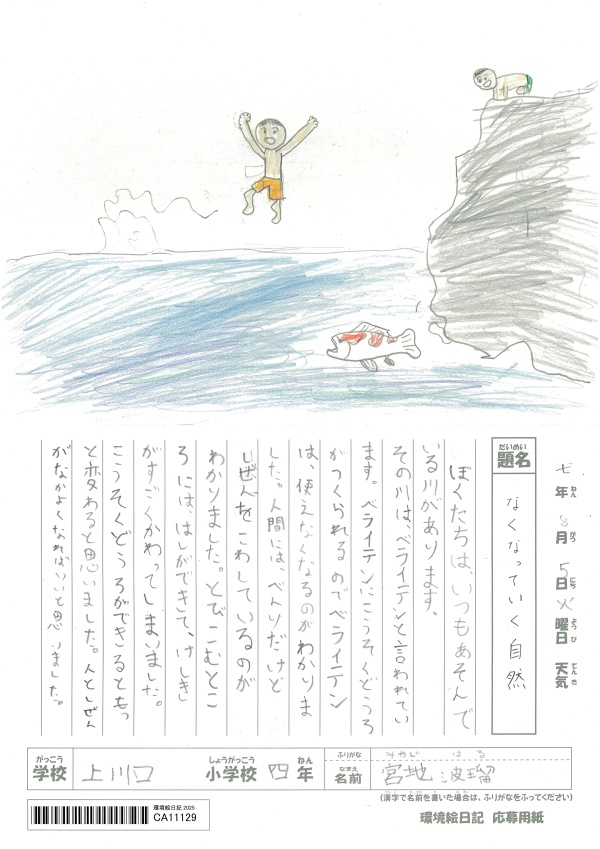 七年8月5日火曜日 天気
ねん がつ にち ようび てんき
だいめい
題名
なくなっていく自然
ぼくたちは、いつもあそんで
いる川があります。
その川は、ベライテンと言われてい
ます。ベライテンにこうそくどうろ
がつくられるのでベライテン
は、使えなくなるのがわかりま
した。人間には、べんりだけど
しぜんをこわしているのが
わかりました。とびこむとこ
ろには、はしができて、けしき
がすごくかわってしまいました。
こうそくどうろができるともっ
と変わると思いました。人としぜん
がなかよくなればいいと思いました。
がっこう
学校
上川口
しょうがっこう
小学校
四年
ねん
ふりがな
みやじ はる
なまえ
名前
宮地 波瑠
(漢字で名前を書いた場合は、ふりがなをふってください)
環境絵日記 2025
CA11129
環境絵日記 応募用紙